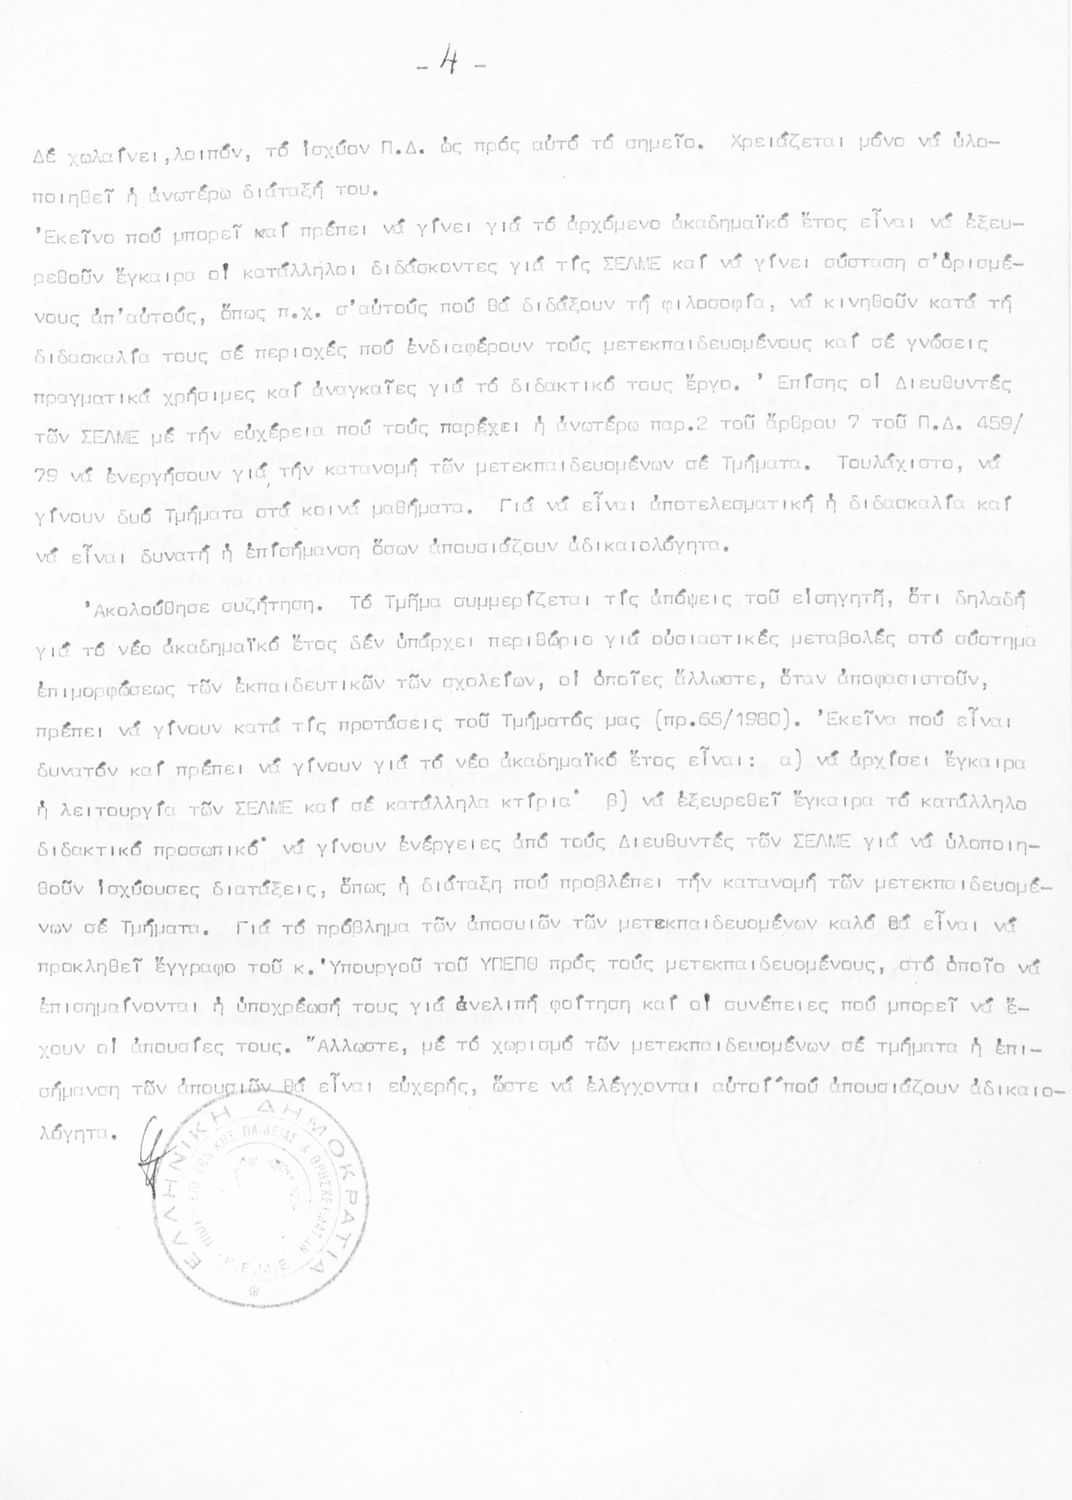 - 4 -
Δέ χωλαίνει, λοιπόν, τό ἰσχύον Π.Δ. ὡς πρός αὐτό τό σημεῖο. Χρειάζεται μόνο νά ὑλο-
ποιηθεῖ ἡ ἀνωτέρω διάταξή του.
Ἐκεῖνο πού μπορεῖ καί πρέπει νά γίνει γιά τό ἀρχόμενο ἀκαδημαϊκό ἔτος εἶναι νά ἐξευ-
ρεθοῦν ἔγκαιρα οἱ κατάλληλοι διδάσκοντες γιά τίς ΣΕΛΜΕ καί νά γίνει σύσταση σ'ὁρισμέ-
νους ἀπ'αὐτούς, ὅπως π.χ. σ'αὐτούς πού θά διδάξουν τή φιλοσοφία, νά κινηθοῦν κατά τή
διδασκαλία τους σέ περιοχές πού ἐνδιαφέρουν τούς μετεκπαιδευομένους καί σέ γνώσεις
πραγματικά χρήσιμες καί ἀναγκαῖες γιά τό διδακτικό τους ἔργο. Ἐπίσης οἱ Διευθυντές
τῶν ΣΕΛΜΕ μέ τήν εὐχέρεια πού τούς παρέχει ἡ ἀνωτέρω παρ.2 τοῦ ἄρθρου 7 τοῦ Π.Δ. 459/
79 νά ἐνεργήσουν γιά τήν κατανομή τῶν μετεκπαιδευομένων σέ Τμήματα. Τουλάχιστο, νά
γίνουν δυό Τμήματα στά κοινά μαθήματα. Γιά νά εἶναι ἀποτελεσματική ἡ διδασκαλία καί
νά εἶναι δυνατή ἡ ἐπισήμανση ὅσων ἀπουσιάζουν ἀδικαιολόγητα.
Ἀκολούθησε συζήτηση. Τό Τμῆμα συμμερίζεται τίς ἀπόψεις τοῦ εἰσηγητῆ, ὅτι δηλαδή
γιά τό νέο ἀκαδημαϊκό ἔτος δέν ὑπάρχει περιθώριο γιά οὐσιαστικές μεταβολές στό σύστημα
ἐπιμορφώσεως τῶν ἐκπαιδευτικῶν τῶν σχολείων, οἱ ὁποῖες ἄλλωστε, ὅταν ἀποφασιστοῦν,
πρέπει νά γίνουν κατά τίς προτάσεις τοῦ Τμήματός μας (πρ.65/1980). Ἐκεῖνα πού εἶναι
δυνατόν καί πρέπει νά γίνουν γιά τό νέο ἀκαδημαϊκό ἔτος εἶναι: α) νά ἀρχίσει ἔγκαιρα
ἡ λειτουργία τῶν ΣΕΛΜΕ καί σέ κατάλληλα κτίρια· β) νά ἐξευρεθεῖ ἔγκαιρα τό κατάλληλο
διδακτικό προσωπικό· νά γίνουν ἐνέργειες ἀπό τούς Διευθυντές τῶν ΣΕΛΜΕ γιά νά ὑλοποιη-
θοῦν ἰσχύουσες διατάξεις, ὅπως ἡ διάταξη πού προβλέπει τήν κατανομή τῶν μετεκπαιδευομέ-
νων σέ Τμήματα. Γιά τό πρόβλημα τῶν ἀποσυιῶν τῶν μετεκπαιδευομένων καλό θά εἶναι νά
προκληθεῖ ἔγγραφο τοῦ κ.Ὑπουργοῦ τοῦ ΥΠΕΠΘ πρός τούς μετεκπαιδευομένους, στό ὁποῖο νά
ἐπισημαίνονται ἡ ὑποχρέωσή τους γιά ἀνελιπή φοίτηση καί οἱ συνέπειες πού μπορεῖ νά ἔ-
χουν οἱ ἀπουσίες τους. Ἄλλωστε, μέ τό χωρισμό τῶν μετεκπαιδευομένων σέ τμήματα ἡ ἐπι-
σήμανση τῶν ἀπουσιῶν θά εἶναι εὐχερής, ὥστε νά ἐλέγχονται αὐτοί πού ἀπουσιάζουν ἀδικαιο-
λόγητα.
ΕΛΛΗΝΙΚΗ ΔΗΜΟΚΡΑΤΙΑ
ΠΑΙΔΕΙΑΣ & ΘΡΗΣΚΕΥΜΑΤΩΝ
Κ.Ε.Μ.Ε.